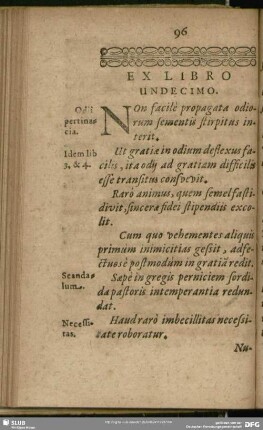 96
EX LIBRO
UNDECIMO.
Odii
pertina-
cia.
NOn facilè propagata odio-
rum sementis stirpitus in-
terit.
Idem lib
3. & 4.
Ut gratiæ in odium deflexus fa-
cilis, ita odij ad gratiam difficilis
esse transitus consvevit.
Rarò animus, quem semel fasti-
divit, sincera fidei stipendiis exco-
lit.
Cum quo vehementes aliquis
primum inimicitias gessit, adfe-
ctuosè postmodum in gratiã redit.
Scanda-
lum.
Sæpe in gregis perniciem sordi-
da pastoris intemperantia redun-
dat.
Necessi-
tas.
Haud rarò imbecillitas necessi-
tate roboratur.
Nu-
SLUB
DFG